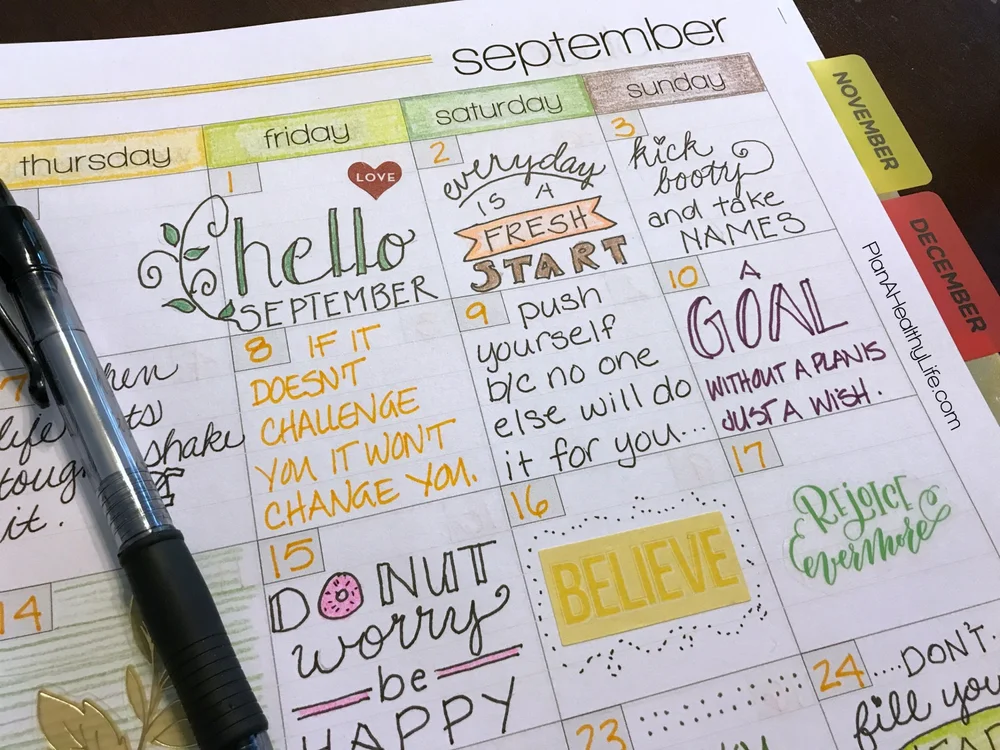 september
thursday
friday
saturday
sunday
NOVEMBER
DECEMBER
PlanAHealthyLife.com
1
LOVE
hello
SEPTEMBER
2
everyday
IS A
FRESH
START
3
kick
booty
and take
NAMES
7
life
shake
it.
8 IF IT
DOESN'T
CHALLENGE
YOU IT WON'T
CHANGE YOU.
9 push
yourself
b/c no one
else will do
it for you...
10 A
GOAL
WITHOUT A PLAN IS
JUST A WISH.
14
15
DONUT
worry
be
HAPPY
16
BELIEVE
17
Rejoice
Evermore
23
24 ...DON'T
fill you